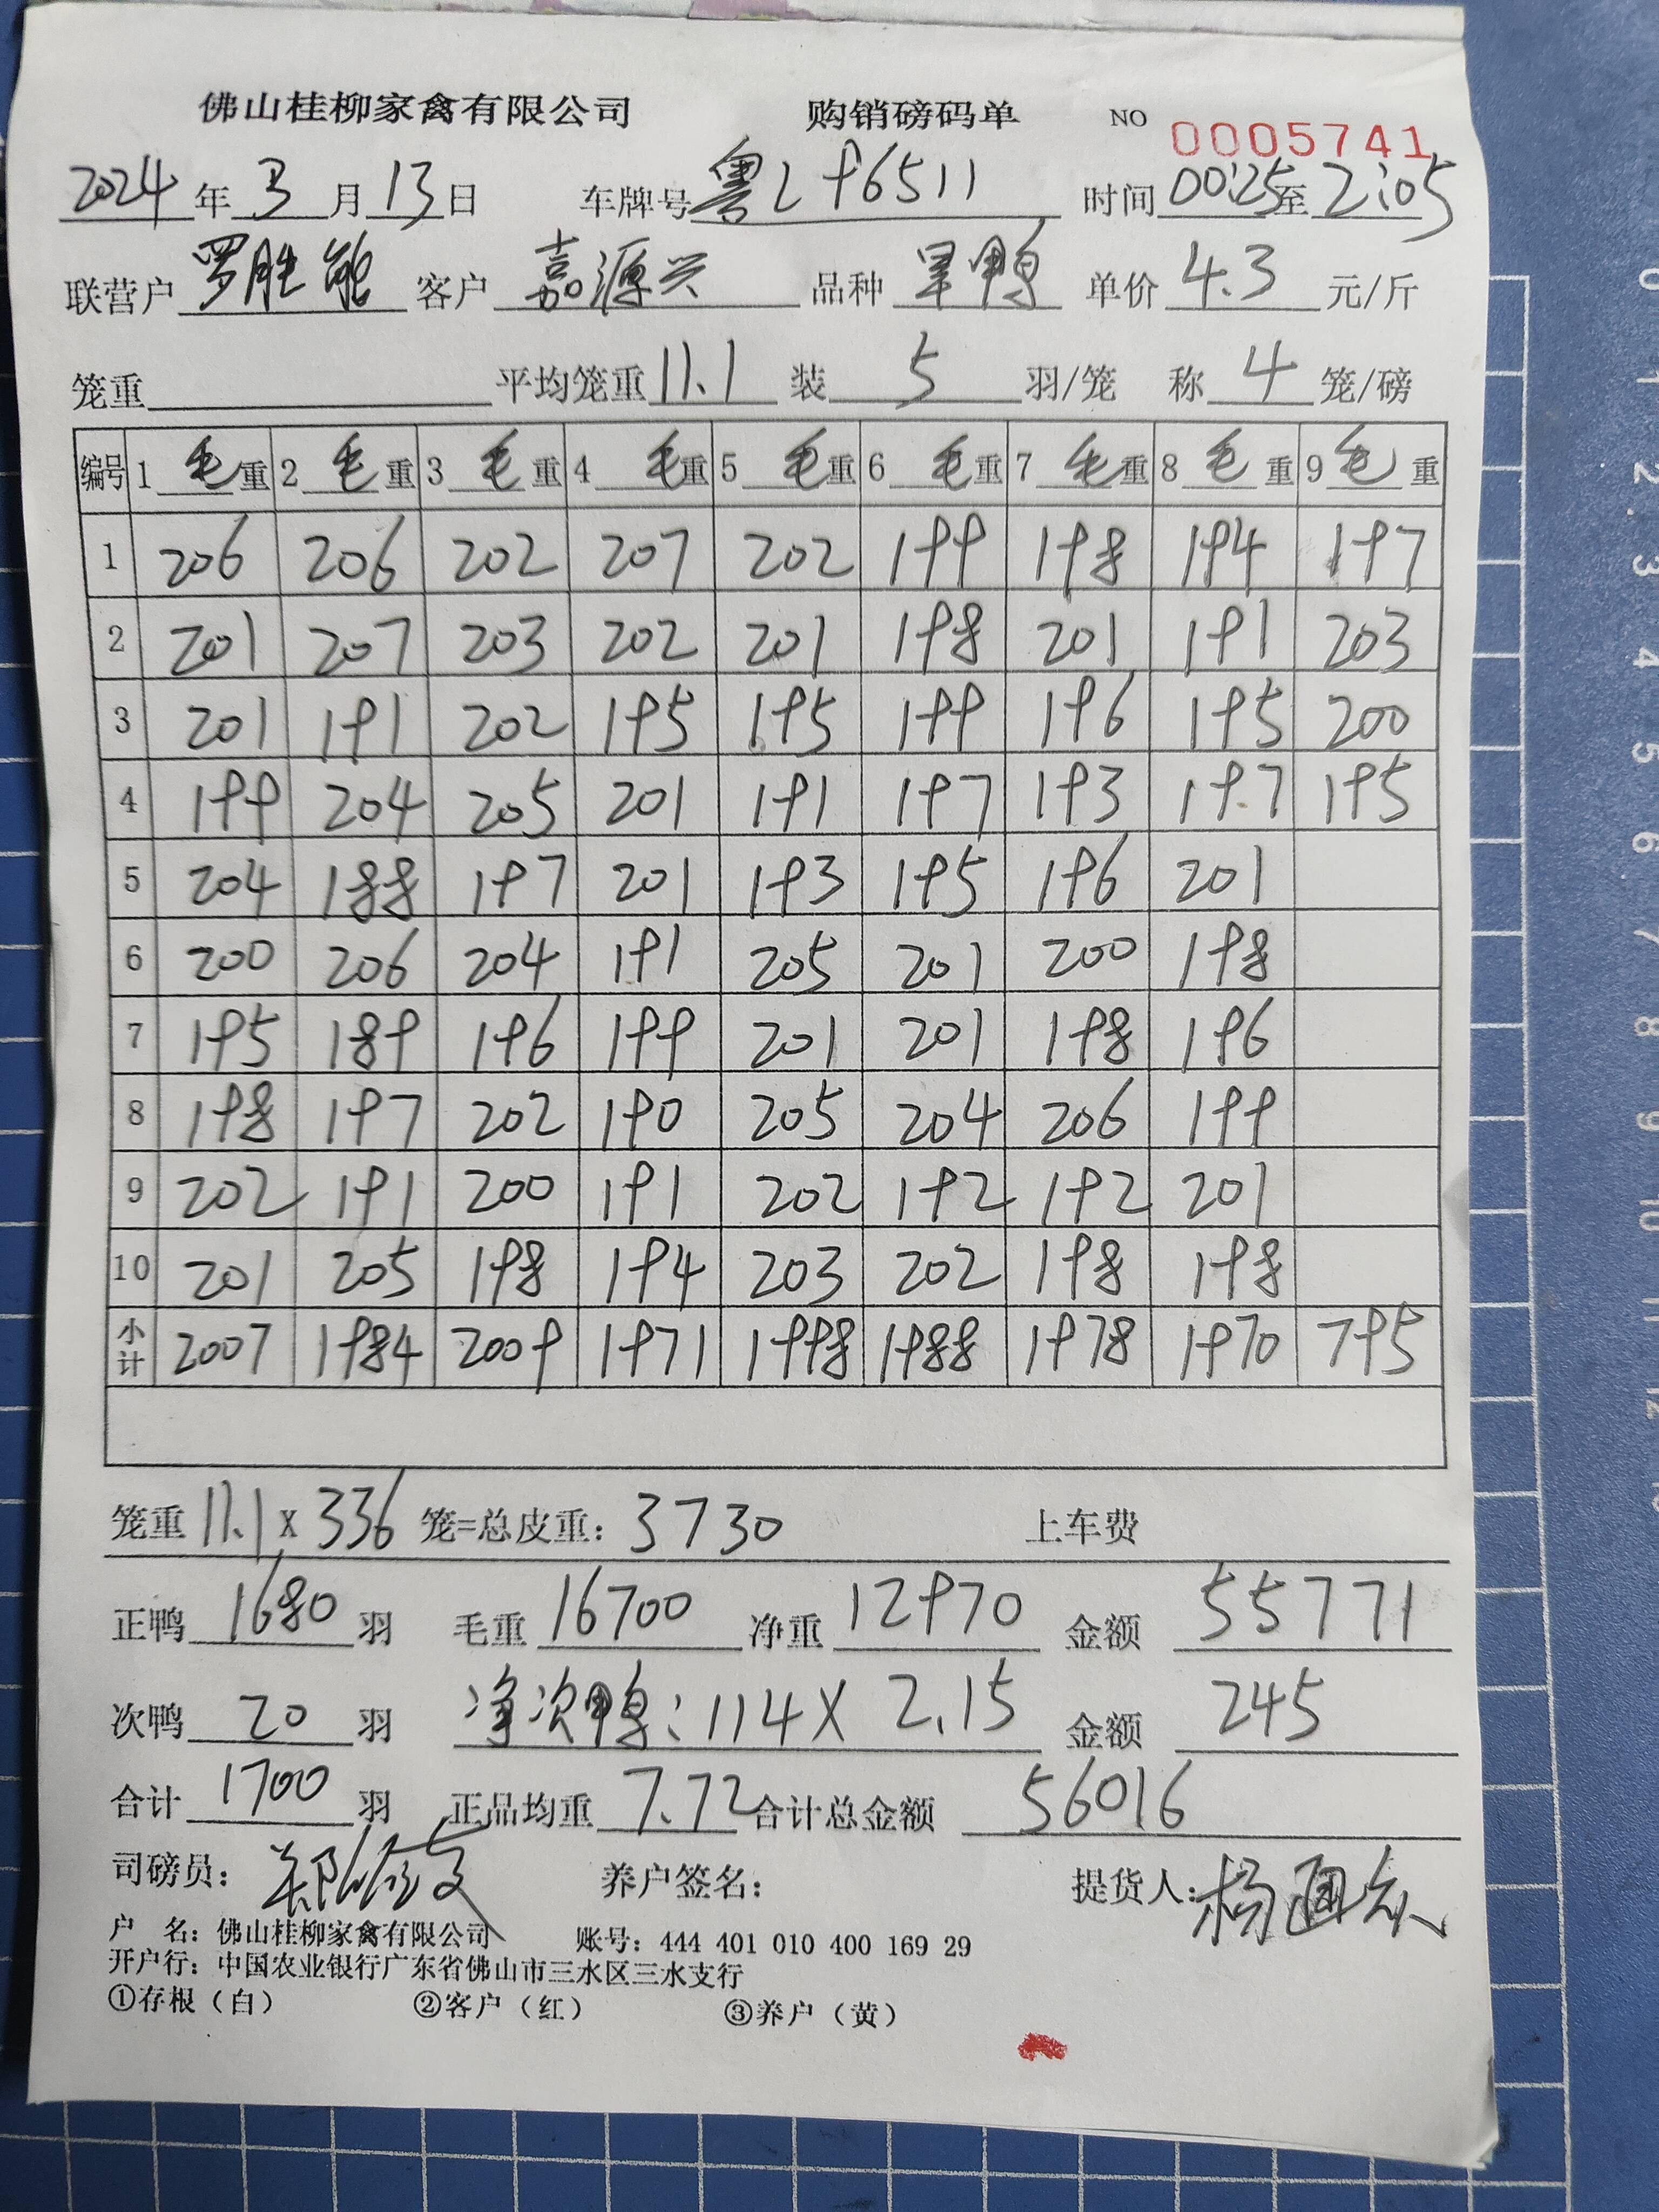 佛山桂柳家禽有限公司 购销磅码单 NO 0005741
2024年3月13日 车牌号粤L96511 时间00:25至2:05
联营户罗胜能 客户嘉源兴 品种旱鸭 单价4.3元/斤
笼重 平均笼重11.1 装5羽/笼 称4笼/磅
编号 1毛重 2毛重 3毛重 4毛重 5毛重 6毛重 7毛重 8毛重 9毛重
1 206 206 202 207 202 199 198 194 197
2 201 207 203 202 201 198 201 191 203
3 201 191 202 195 195 199 196 195 200
4 199 204 205 201 191 197 193 197 195
5 204 188 197 201 193 195 196 201
6 200 206 204 191 205 201 200 198
7 195 189 196 199 201 201 198 196
8 198 197 202 190 205 204 206 199
9 202 191 200 191 202 192 192 201
10 201 205 198 194 203 202 198 198
小计 2007 1984 2009 1971 1998 1988 1978 1970 795
笼重11.1x336笼=总皮重：3730 上车费
正鸭1680羽 毛重16700 净重12970 金额55771
次鸭20羽 净次鸭：114X2.15 金额245
合计1700羽 正品均重7.72 合计总金额56016
司磅员： 养户签名： 提货人：杨
户 名：佛山桂柳家禽有限公司 账号：444 401 010 400 169 29
开户行：中国农业银行广东省佛山市三水区三水支行
①存根（白） ②客户（红） ③养户（黄）
0 1 2 3 4 5 6 7 8 9 10 11 12 13